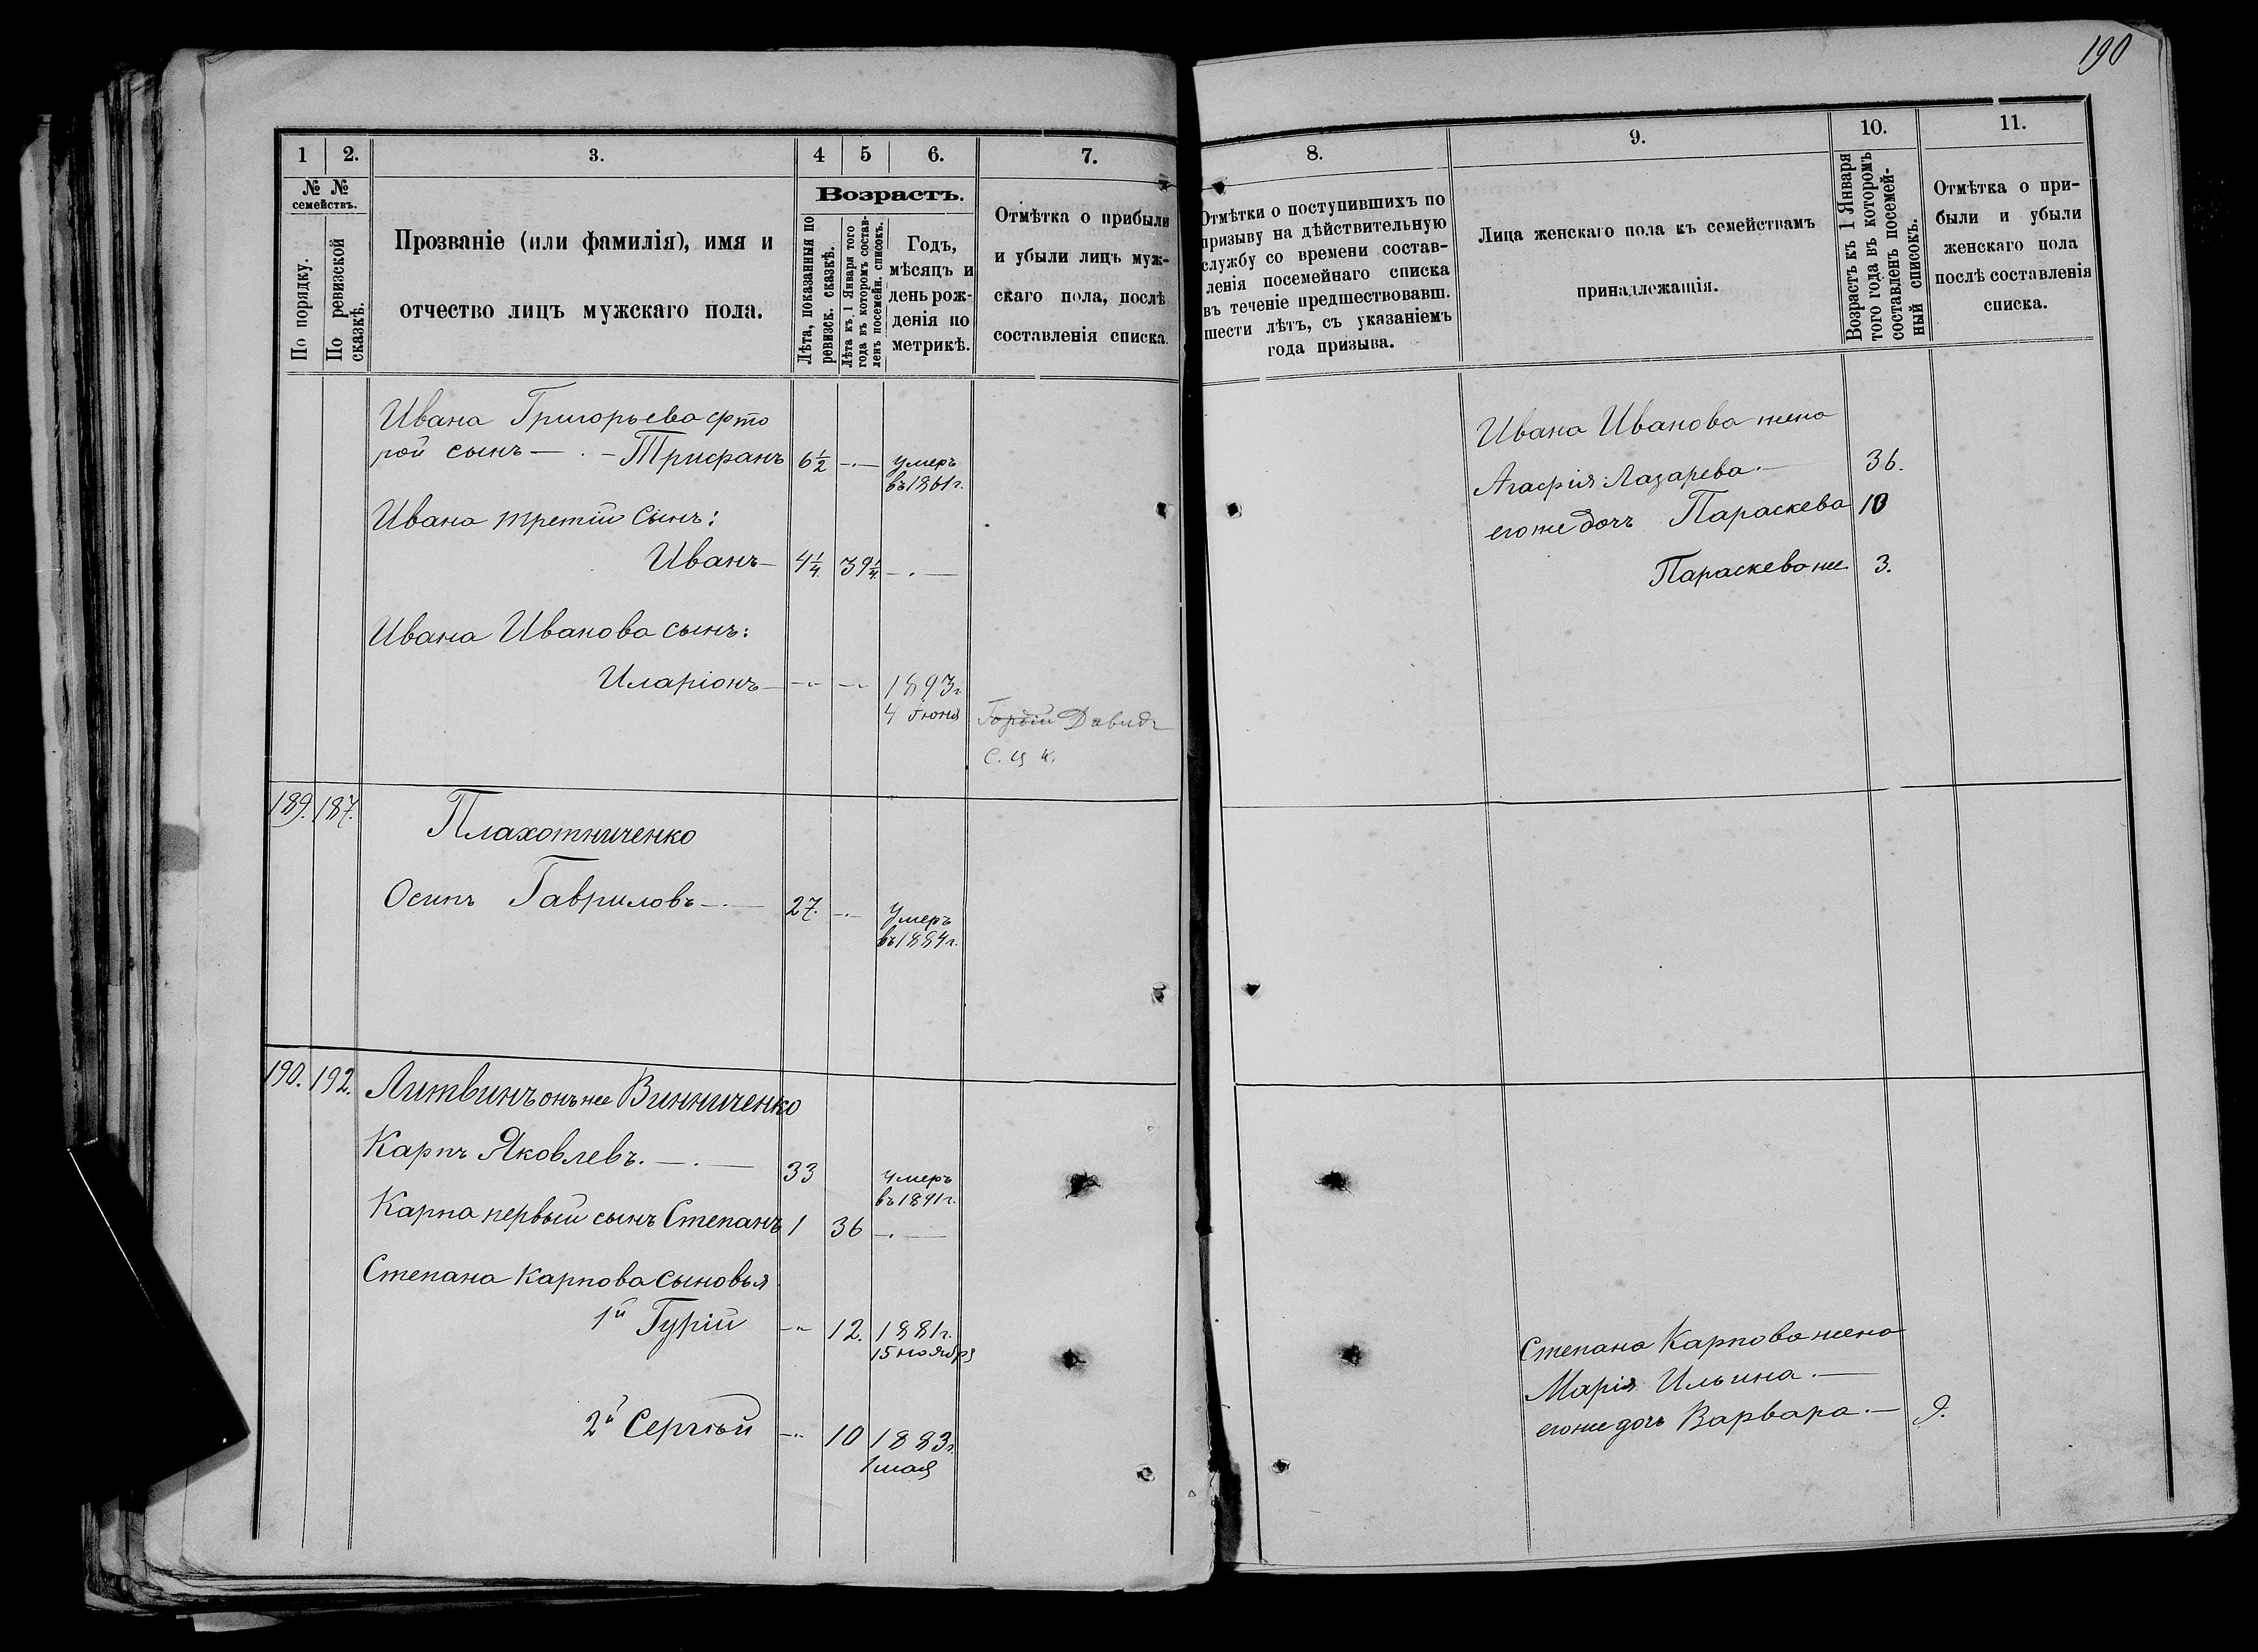 190
1
2.
3.
4
5
6.
7.
№ №
семействъ.
По порядку.
По ревизской
сказкѣ.
Прозваніе (или фамилія), имя и
отчество лицъ мужскаго пола.
Возрастъ.
Лѣта, показанныя по
ревизск. сказкѣ.
Лѣта къ 1 Января того
года въ которомъ состав-
ленъ посемейн. списокъ.
Годъ,
мѣсяцъ и
день рож-
денія по
метрикѣ.
Отмѣтка о прибыли
и убыли лицъ муж-
скаго пола, послѣ
составленія списка.
8.
9.
10.
11.
Отмѣтки о поступившихъ по
призыву на дѣйствительную
службу со времени состав-
ленія посемейнаго списка
въ теченіе предшествовавш.
шести лѣтъ, съ указаніемъ
года призыва.
Лица женскаго пола къ семействамъ
принадлежащія.
Возрастъ къ 1 Января
того года въ которомъ
составленъ посемей-
ный списокъ.
Отмѣтка о при-
были и убыли
женскаго пола
послѣ составленія
списка.
Ивана Григорьева фто
рой сынъ — . – Трифанъ 6½ –.— Умеръ
въ 1861 г.
Ивана третій сынъ:
Иванъ – 4¼. 39¼. –.—
Ивана Иванова сынъ:
Иларіонъ – 1893 г.
4 Іюня
Гордій Давидъ
Ивана Иванова жена
Агафія Лазарева. — 36.
его же дочь Параскева 10
Параскева же 3.
189. 187.
Плахотниченко
Осипъ Гавриловъ –.— 27. –.– Умеръ
въ 1884 г.
190. 192. Литвинъ онъ же Винниченко
Карпъ Яковлевъ. –.— 33 Умеръ
въ 1891 г.
Карпа первый сынъ Степанъ 1 36 –.—
Степана Карпова сыновья
1й Гурій 12. 1881 г.
15 ноября
2й Сергѣй 10 1883 г.
1 мая
Степана Карпова жена
Марія Ильина. —
его же дочь Варвара. –